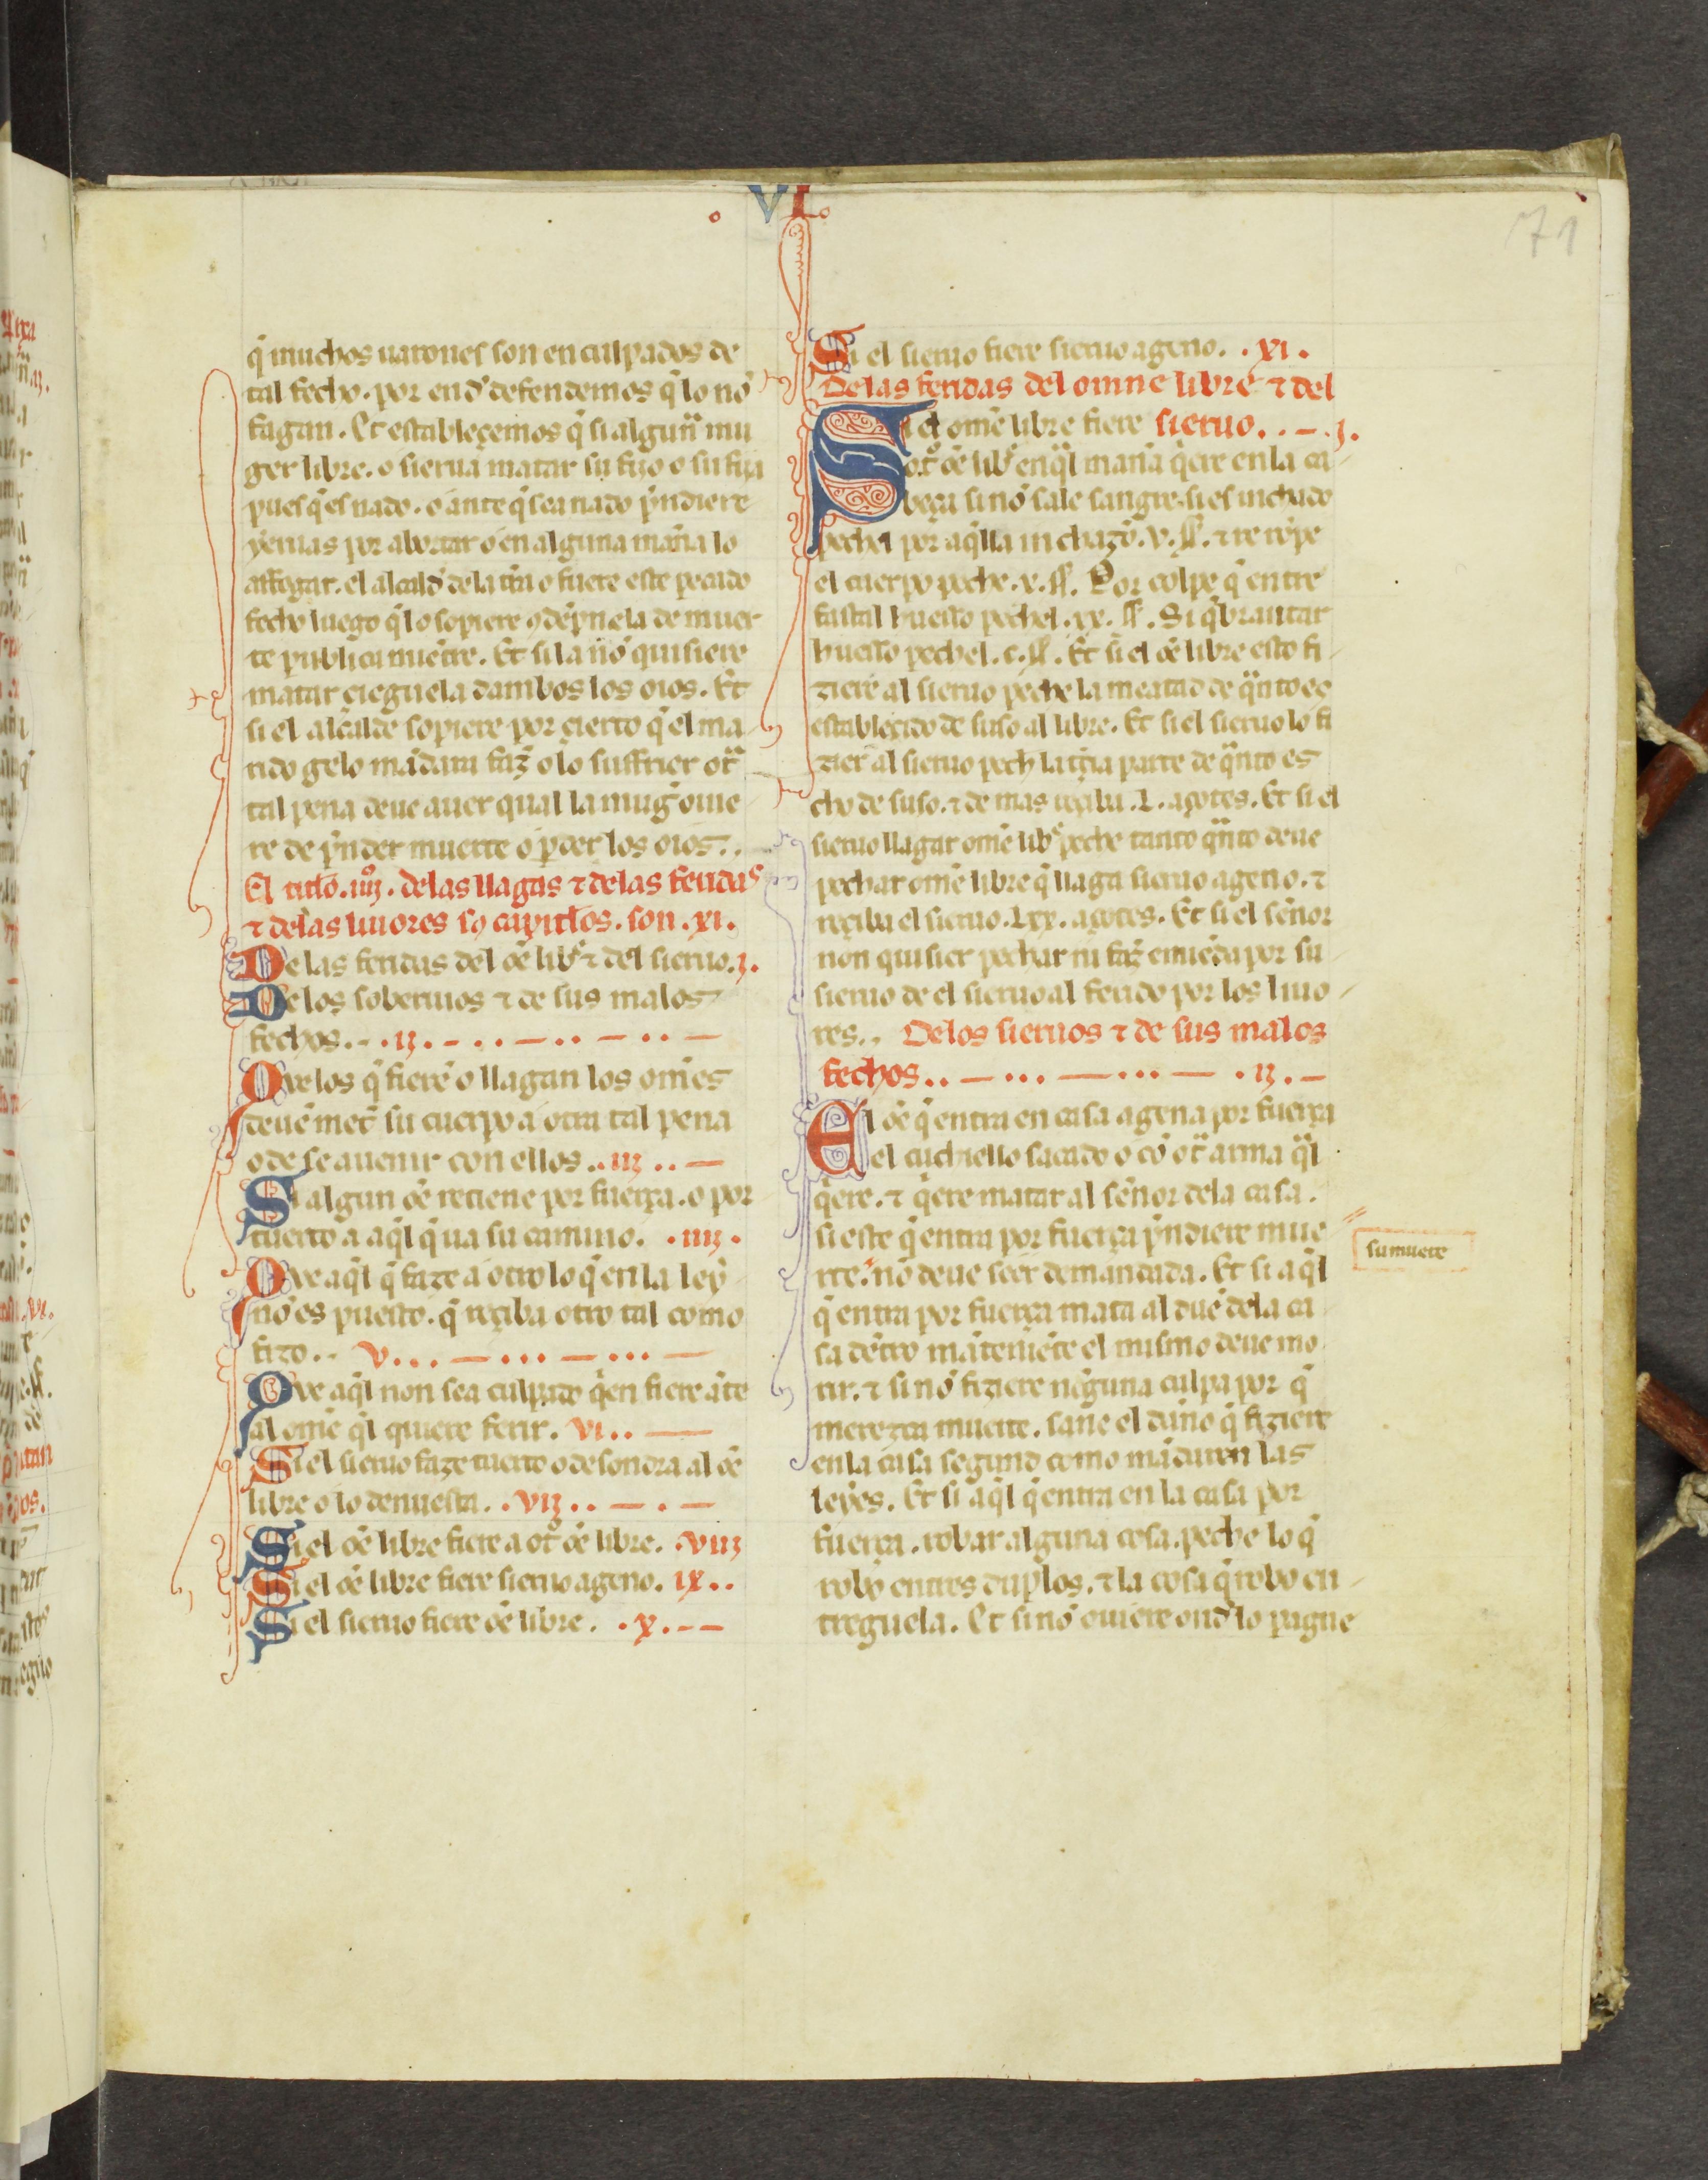 VI.
71
q̄ muchos uarones son en culpados de
tal fecho. por end̄ defendemos q̄ lo nō
fagan. Et estableçemos q̄ si algun̄ mu
ger libre. o sierua matar su fijo o su fija
pues q̄ es nado. o ante q̄ sea nado p̄ndiere
yeruas por abortar o en alguna man̄a lo
affogar. el alcald̄ de la tr̄a o fuere este pecado
fecho luego q̄ lo sopiere ꝯdēpnela de muer
te publica miētre. Et si la nō quisiere
matar çieguela dambos los oios. Et
si el alcalde sopiere por çierto q̄ el ma
rido gelo mādara faz̄ o lo suffrier ot̄
tal pena deue auer qual la muḡ ouie
re de p̄nder muerte o ꝑder los oios.
El titło .iiijº. de las llagas ⁊ de las feridas
⁊ de las liuores sꝯ capitłos. son .xi.
De las feridas del oē lib̄ ⁊ del sieruo .j.
De los soberuios ⁊ de sus malos
fechos . . .ij. - . . - . . - . . -
Que los q̄ fierē o llagan los om̄es
deuē met̄ su cuerpo a otra tal pena
o de se auenir con ellos . . iij . . -
Si algun oē retiene por fuerça. o por
tuerto a aq̄l q̄ ua su camino. .iiij.
Que aq̄l q̄ faze a otro lo q̄ en la ley
nō es puesto. q̄ reçiba otro tal como
fizo . . v . . . - . . . - . . . -
Que aq̄l non sea culpado q̄en fiere āte
al omē q̄l quiere ferir. vi . . -
Si el sieruo faze tuerto o desondra al oē
libre o lo denuesta. .vij . . - . -
Si el oē libre fiere a ot̄ oē libre. .viij
Si el oē libre fiere sieruo ageno. ix . .
Si el sieruo fiere oē libre. .x. - -
Si el sieruo fiere sieruo ageno. .xi.
De las feridas del omne libre ⁊ del
Si el omē libre fiere sieruo . . - .j.
ot̄ oē lib̄ en q̄l man̄a q̄ere en la ca
beça si nō sale sangre. si es inchado
pechel por aq̄lla inchazō .v. ss̄. ⁊ se rōpe
el cuerpo peche .x. ss̄. Por colpe q̄ entre
fastal huesso pechel .xx. ss̄. Si q̄brantar
huesso pechel .c. ss̄. Et si el oē libre esto fi
ziere al sieruo peche la meatad de q̄nto es
establecido de suso al libre. Et si el sieruo lo fi
zier̄ al sieruo pech̄ la t̄çia parte de q̄nto es
cho de suso. ⁊ de mas reçiba .L. açotes. Et si el
sieruo llagar omē lib̄ peche tanto q̄nto deue
pechar omē libre q̄ llaga sieruo ageno. ⁊
reçiba el sieruo .Lxx. açotes. Et si el sen̄or
non quisier pechar ni faz̄ emiēda por su
sieruo de el sieruo al ferido por los liuo
res. . De los sieruos ⁊ de sus malos
fechos . . - . . . - . . . - .ij. -
El oē q̄ entra en casa agena por fuerça
el cuchiello sacado o cō ot̄ arma q̄l
q̄ere. ⁊ q̄ere matar al sen̄or de la casa.
si este q̄ entra por fuerça p̄ndiere mue
rte. nō deue seer demandada. Et si aq̄l
su muerte
q̄ entra por fuerça mata al duē de la ca
sa dētro māteniēte el mismo deue mo
rir. ⁊ si nō fiziere nīguna culpa por q̄
merezca muerte. sane el dan̄o q̄ fiziere
en la casa segund como mādaren las
leyes. Et si aq̄l q̄ entra en la casa por
fuerça. robar alguna cosa. peche lo q̄
robo en tres duplos. ⁊ la cosa q̄ robo en
treguela. Et si nō ouiere ond̄ lo pague